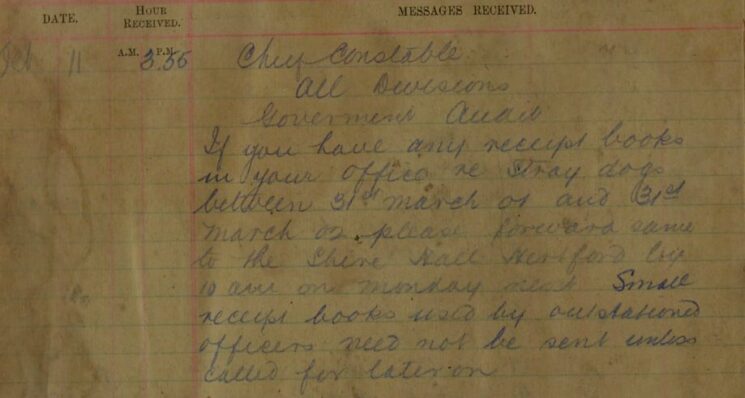 DATE. HOUR RECEIVED. MESSAGES RECEIVED.
Feb 11 A.M. P.M. 3.35 Chief Constable
All Divisions
Goverment Audit
If you have any receipt books
in your office re Stray dogs
between 31st March 01 and 31st
March 02 please forward same
to the Shire Hall Hertford by
10 am on Monday next Small
receipt books used by outstationed
officers need not be sent unless
called for later on